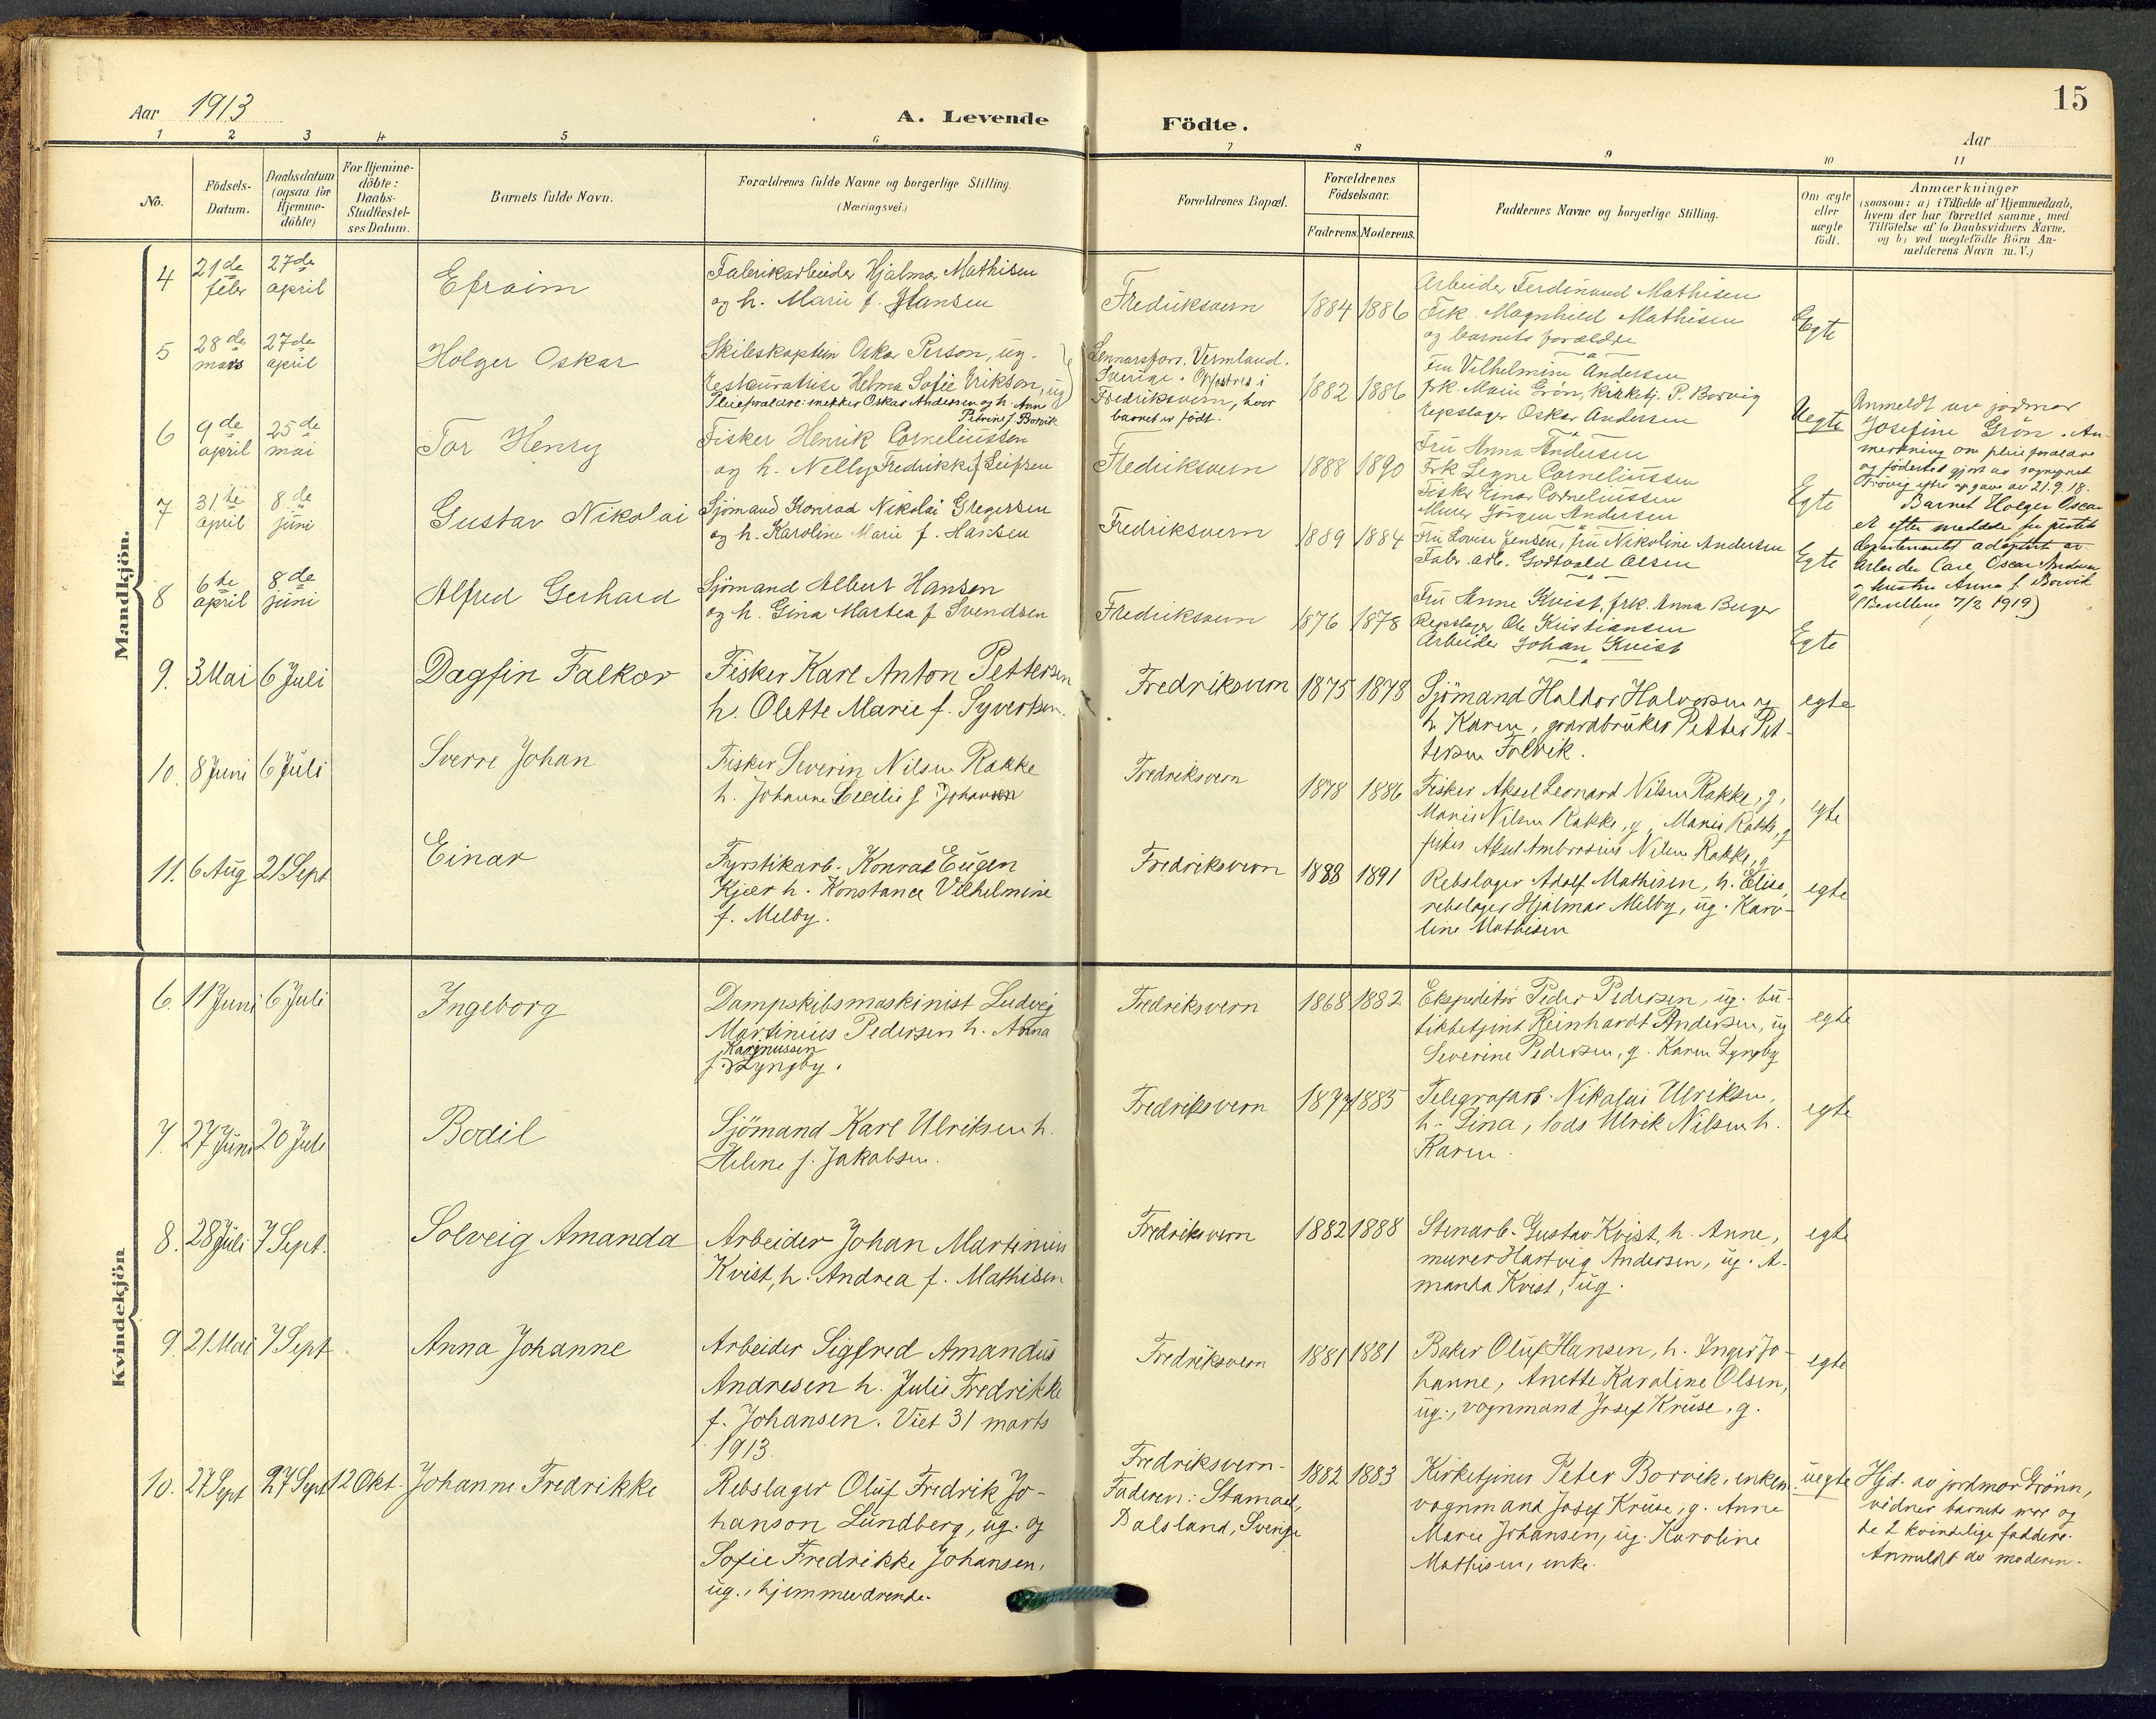 15
Aar 1913
A. Levende Födte.
Aar
1 2 3 4 5 6 7 8 9 10 11
No.
Födsels-Datum.
Daabsdatum (ogsaa for Hjemme-döbte)
For Hjemme-döbte: Daabs-Stadfæstel-ses Datum.
Barnets fulde Navn.
Forældrenes fulde Navne og borgerlige Stilling.
(Næringsvei.)
Forældrenes Bopæl.
Forældrenes Födselsaar.
Faderens. Moderens.
Faddernes Navne og borgerlige Stilling.
Om ægte eller uægte födt.
Anmærkninger
(saasom: a) i Tilfælde af Hjemmedaab,
hvem der har forrettet samme, med
Tilföielse af to Daabsvidners Navne,
og b) ved uægtefödte Börn An-
melderens Navn m. V.)
Mandkjön.
4 21de febr 27de april
Efraim
Fabrikarbeider Hjalmar Mathisen
og h. Marie f. Hansen
Fredriksvern 1884 1886
Arbeider Ferdinand Mathisen
Frk. Magnhild Mathisen
og barnets forældre
Egte
5 28de mars 27de april
Holger Oskar
Skibskaptein Oskar Person, ug.
restauratrise Helma Sofie Erikson, ug
Pleieforældre: snekker Oskar Andersen og h. Anne
Petrine f. Borvik
Lennarsfors. Vermland.
Sverige. Opfostres i
Fredriksvern, hvor
barnet er födt.
1882 1886
Fru Vilhelmine Andersen
frk. Marie Grön, kirketj. P. Borvig
repslager Oskar Andersen
Uegte
Anmeldt av jordmor
Josefine Grön. An-
merkning om pleieforældre
og födested gjort av sogneprest
efter opgave av 21.9.18.
Barnet Holger Oscar
er efter meddelelse fra justits
departementet adoptert av
arbeider Carl Oscar Andersen
og hustru Anna f. Borvik
(Bevilling 7/2 1919)
6 9de april 25de mai
Tor Henry
Fisker Henrik Corneliussen
og h. Nelly Fredrikke f. Leifsen
Fredriksvern 1888 1890
Fru Anna Andersen
Frk Signe Corneliussen
Fisker Einar Corneliussen
Murer Jörgen Andersen
Egte
7 31te april 8de juni
Gustav Nikolai
Sjömand Konrad Nikolai Gregersen
og h. Karoline Marie f. Hansen
Fredriksvern 1889 1884
Fru Lovise Jensen, fru Nikoline Andersen
Fabr. arb. Godtvald Olsen
Egte
8 6te april 8de juni
Alfred Gerhard
Sjömand Albert Hansen
og h. Gina Martea f Svendsen
Fredriksvern 1876 1878
Fru Anne Kvist, frk. Anna Berger
Repslager Ole Kristiansen
Arbeider Johan Kvist
Egte
9. 3 Mai 6 Juli
Dagfin Falkor
Fisker Karl Anton Pettersen
h. Olette Marie f. Syvertsen.
Fredriksvern 1875 1878
Sjömand Haldor Halvorsen og
h. Karen, gaardbruker Petter Pet-
tersen Folvik.
egte
10. 8 Juni 6 Juli
Sverre Johan
Fisker Severin Nilsen Rakke
h. Johanne Cecilie f. Johansen
Fredriksvern 1878 1886
Fisker Aksel Leonard Nilsen Rakke, g,
Marie Nilsen Rakke, g, Maries Rakke, g
fisker Aksel Ambrosius Nilsen Rakke, g
egte
11. 6 Aug 21 Sept
Einar
Fyrstikarb. Konrad Eugen
Kjær h. Konstance Vilhelmine
f. Melby.
Fredriksvern 1888 1891
Rebslager Adolf Mathisen, h. Elise,
rebslager Hjalmar Melby, ug. Karo-
line Mathisen
egte
Kvindekjön
6. 11 Juni 6 Juli
Ingeborg
Dampskibsmaskinist Ludvig
Martinius Pedersen h. Anna
Rasmussen
f. Lyngby.
Fredriksvern 1868 1882
Ekspeditör Peder Pedersen, ug. bu-
tikbetjent Reinhardt Andersen, ug
Severine Pedersen, g. Karen Lyngby
egte
7. 27 Juni 20 Juli
Bodil
Sjömand Karl Ulriksen h.
Helene f. Jakobsen.
Fredriksvern 1877 1885
Telegrafarb. Nikolai Ulriksen,
h. Lina, lods Ulrik Nilsen h.
Karen.
egte
8. 28 Juli 7 Sept.
Solveig Amanda
Arbeider Johan Martinius
Kvist, h. Andrea f. Mathisen
Fredriksvern 1882 1888
Stenarb. Gustav Kvist, h. Anne,
murer Hartvig Andersen, ug. A-
manda Kvist, ug.
egte
9. 21 Mai 7 Sept
Anna Johanne
Arbeider Sigfred Amandus
Andresen h. Julie Fredrikke
f. Johansen. Viet 31 marts
1913.
Fredriksvern 1881 1881
Baker Oluf Hansen, h. Inger Jo-
hanne, Anette Karoline Olsen,
ug., vognmand Josef Kruse, g.
egte
10. 27 Sept 27 Sept 12 Okt.
Johanne Fredrikke
Rebslager Oluf Fredrik Jo-
hanson Lundberg, ug. og
Sofie Fredrikke Johansen,
ug., hjemmeværende.
Fredriksvern.
Faderen: Stamaal,
Dalsland, Sverige
1882 1883
Kirketjener Peter Borvik, enkem.
vognmand Josef Kruse, g. Anne
Marie Johansen, ug. Karoline
Mathisen, enke.
uegte
Hjd. av jordmor Grönn,
vidner barnets mor og
de 2 kvindelige faddere.
Anmeldt av moderen.